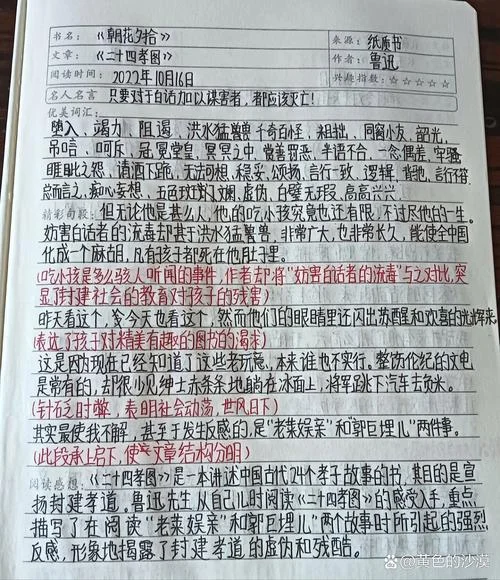 书名：《朝花夕拾》 来源：纸质书
文章：《二十四孝图》 作者：鲁迅
阅读时间：2022年10月16日 兴趣指数：☆☆☆☆☆
名人名言 只要对于白话加以谋害者，都应该灭亡！
优美词汇：
堕入、竭力、阻遏、洪水猛兽、千奇百怪、粗拙、同窗小友、韶光、
吊唁、呵斥、冠冕堂皇、冥冥之中、赏善罚恶、半语不合、一念偶差、牢骚
睚眦之怨、请酒下跪、无法可想、稳妥、颂扬、言行一致、逻辑、背弛、言行不符、
总而言之、痴心妄想、五色玟斓、虚伪、白璧无瑕、高高兴兴
精彩句段：但无论他是甚么人，他的吃小孩究竟也还有限，不过尽他的一生。
妨害白话者的流毒却甚于洪水猛兽，非常广大，也非常长久，能使全中国
化成一个麻胡，凡有孩子都死在他肚子里。
(吃小孩是多么骇人听闻的事件，作者却将"妨害白话者的流毒"与之对比，突
显了封建社会的教育对孩子的残害)
昨天看这个，今天也看这个，然而他们的眼睛里还闪出苏醒和欢喜的光辉来。
(表达了孩子对精美有趣的图书的渴求)
这是因为现在已经知道了这些老玩意，本来谁也不实行。整饬伦纪的文电
是常有的，却很少见绅士赤条条地躺在冰面上，将军跳下汽车去负米。
(针砭时弊，表明社会动荡，世风日下)
其实最使我不解，甚至于发生反感的，是"老莱娱亲"和"郭巨埋儿"两件事。
(此段承上启下，使文章结构分明)
阅读感想：《二十四孝图》是一本讲述中国古代24个孝子故事的书，其目的是宣
扬封建孝道。鲁迅先生从自己儿时阅读《二十四孝图》的感受入手，重点
描写了在阅读"老莱娱亲"和"郭巨埋儿"两个故事时所引起的强烈
反感，形象地揭露了封建孝道的虚伪和残酷。
@黄色的沙漠